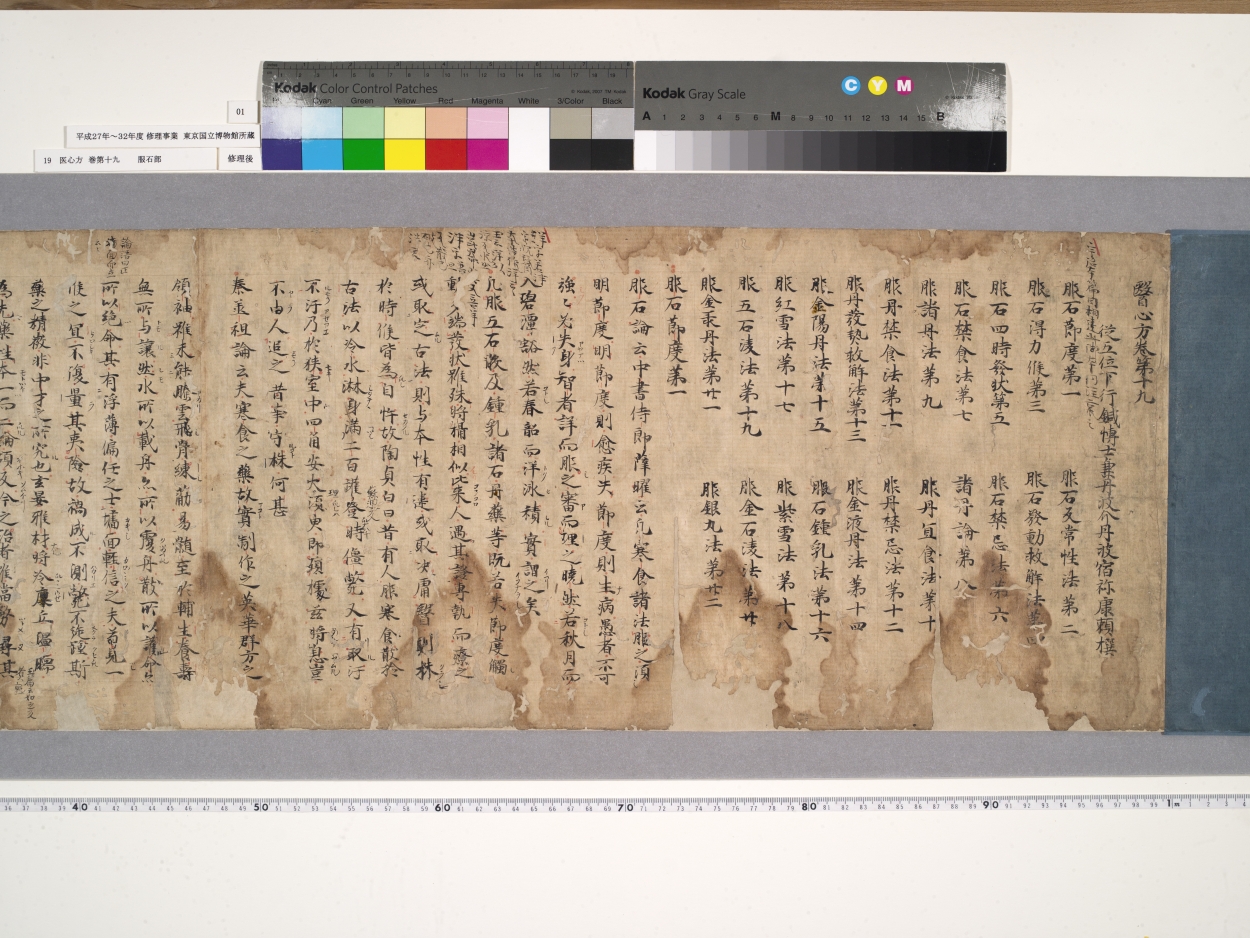 01
平成27年～32年度 修理事業 東京国立博物館所蔵
19 医心方 巻第十九 服石部
修理後
Kodak Color Control Patches
Cyan Green Yellow Red Magenta White 3/Color Black
Kodak Gray Scale
C Y M
A 1 2 3 4 5 6 M 8 9 10 11 12 13 14 15 B
醫心方卷第十九
從五位下行鍼博士兼丹波介丹波宿祢康頼撰
服石節度第一 服石反常性法第二
服石得力候第三 服石發動救解法第四
服石四時發狀第五 服石禁忌法第六
服石禁食法第七 諸丹論第八
服諸丹法第九 服丹宜食法第十
服丹禁食法第十一 服丹禁忌法第十二
服丹發熱救解法第十三 服金液丹法第十四
服金陽丹法第十五 服石鍾乳法第十六
服紅雪法第十七 服紫雪法第十八
服五石淩法第十九 服金石淩法第廿
服金汞丹法第廿一 服銀丸法第廿二
服石節度第一
服石論云中書侍郎薛曜云凡寒食諸法服之須
明節度明節度則愈疾失節度則生病愚者不可
強必失身智者詳而服之審而理之曉然若秋月而
入碧潭豁然若春韶而洋冰積實謂之矣
凡服五石散及鍾乳諸石丹藥等既若失節度觸
動多端發狀雖殊將檑相似比來人遇其證專執而療之
或取定古法則与本性有違或取決庸醫則株
於時候皆為自忤故陶貞白曰昔有人服寒食散於
古法以冷水淋身滿二百罐登時僵斃又有取汗
不汗乃於狹室中四角安火須臾即殞據茲將息豈
不由人追之昔事守株何甚
秦丞祖論云夫寒食之藥故實制作之英華群方之
領袖雖未能騰雲飛骨練筋易髓至於輔生養壽
無所与讓然水所以載舟亦所以覆舟散所以護命亦
所以絕命其有浮薄偏任之士墻面輕信之夫苟見一
候之宜不復量其夷險故禍成不測斃不旋踵斯
藥之精微非中才之所究也玄晏雅材將冷廩丘溫暍
40 50 60 70 80 90 1m